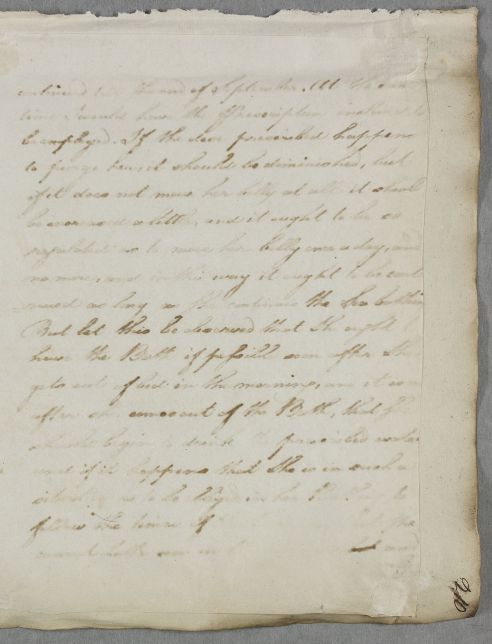 continued till the end of September. All the
time I would have the Prescription inclosed to
be employed. If the dose prescribed happens
to purge her, it should be diminished, but
if it does not move her belly at all it should
be increased a little, and it ought to be so
regulated as to move her belly once a day, and
no more, and in this way it ought to be cont
inued as long as she continues the Sea bathing
But let this be observed that She ought to
have the Bath if possible soon after She
gets out of bed in the morning, and it is
after she comes out of the Bath, that She
should begin to drink the prescribed water
and if it happens that She is in such a
situation as to be obliged in her Bathing to
follow the times of the
cannot bathe soon in